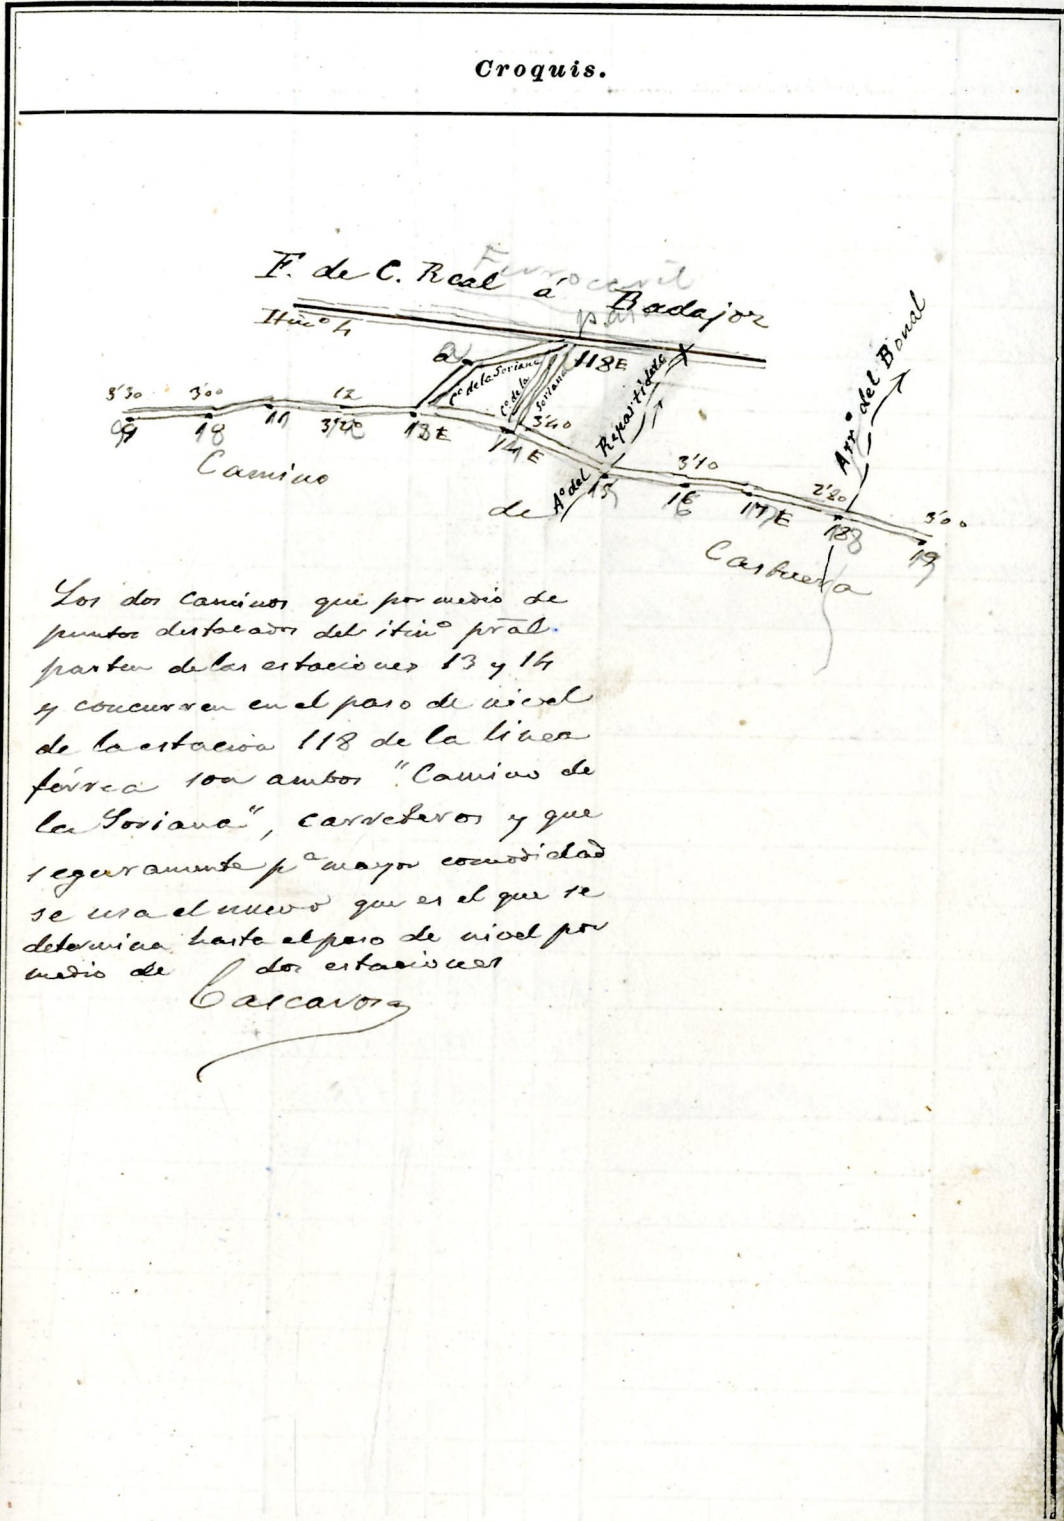 Croquis.
Ferrocarril
F. de C. Real á Badajoz
Itinº 4
a
118 E
Cº de la Soriana
Cº de la Soriana
Aº del Repartidero
Arrº del Bonal
3'30 3'00 12 3'40 3'10 2'80 3'00
9 11 13 E 14 E 15 16 17 E 18 19
Camino de Castuera
Los dos caminos que por medio de
puntos destacados del itinº pral.
parten de las estaciones 13 y 14
y concurren en el paso de nivel
de la estacion 118 de la linea
férrea son ambos "Camino de
la Soriana", carreteros y que
seguramente pª mayor comodidad
se usa el nuevo que es el que se
determina hasta el paso de nivel por
medio de dos estaciones